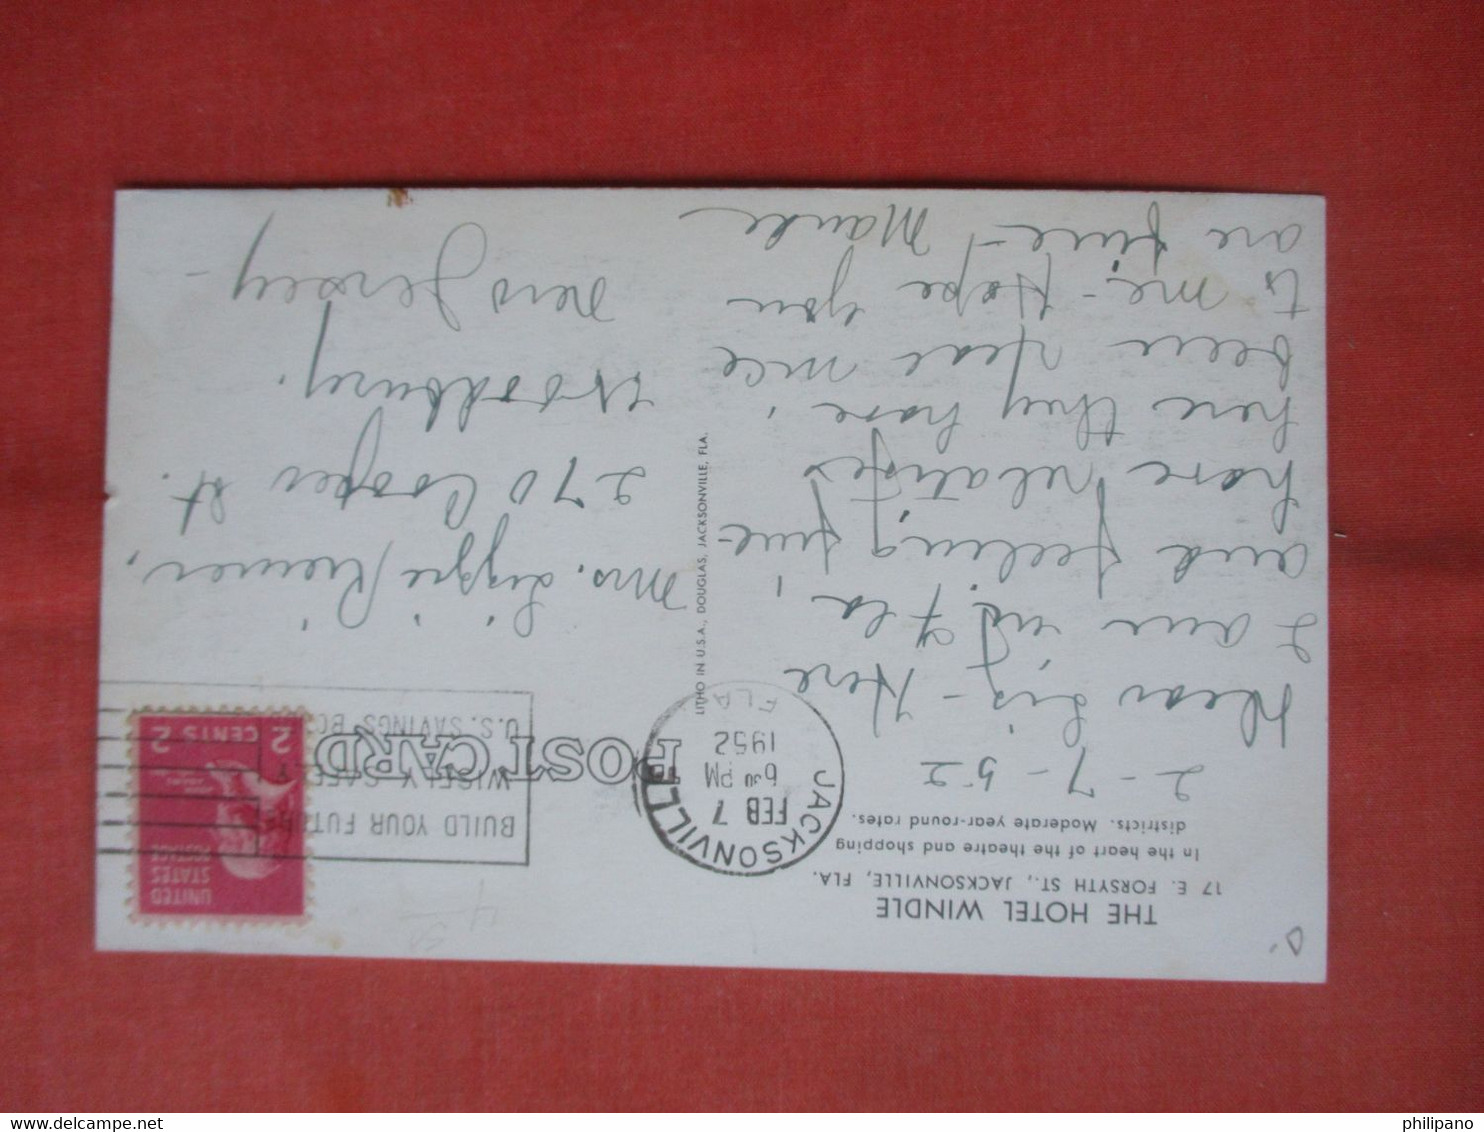 THE HOTEL WINDLE
17 E. FORSYTH ST., JACKSONVILLE, FLA.
In the heart of the theatre and shopping
districts. Moderate year-round rates.
2-7-52
Dear Lis- Here
I am in Fla,
and feeling fine-
have relatives
here they have
been real nice
to me- Hope you
are fine- Maude
LITHO IN U.S.A., DOUGLAS, JACKSONVILLE, FLA.
POST CARD
JACKSONVILLE
FEB 7
6 30 PM
1952
FLA
BUILD YOUR FUTURE
WISELY SAFELY
U.S. SAVINGS BO
UNITED
STATES
POSTAGE
2 CENTS 2
Mrs. Lizzie
270 Cooper St.
Woodbury.
New Jersey-
philipano